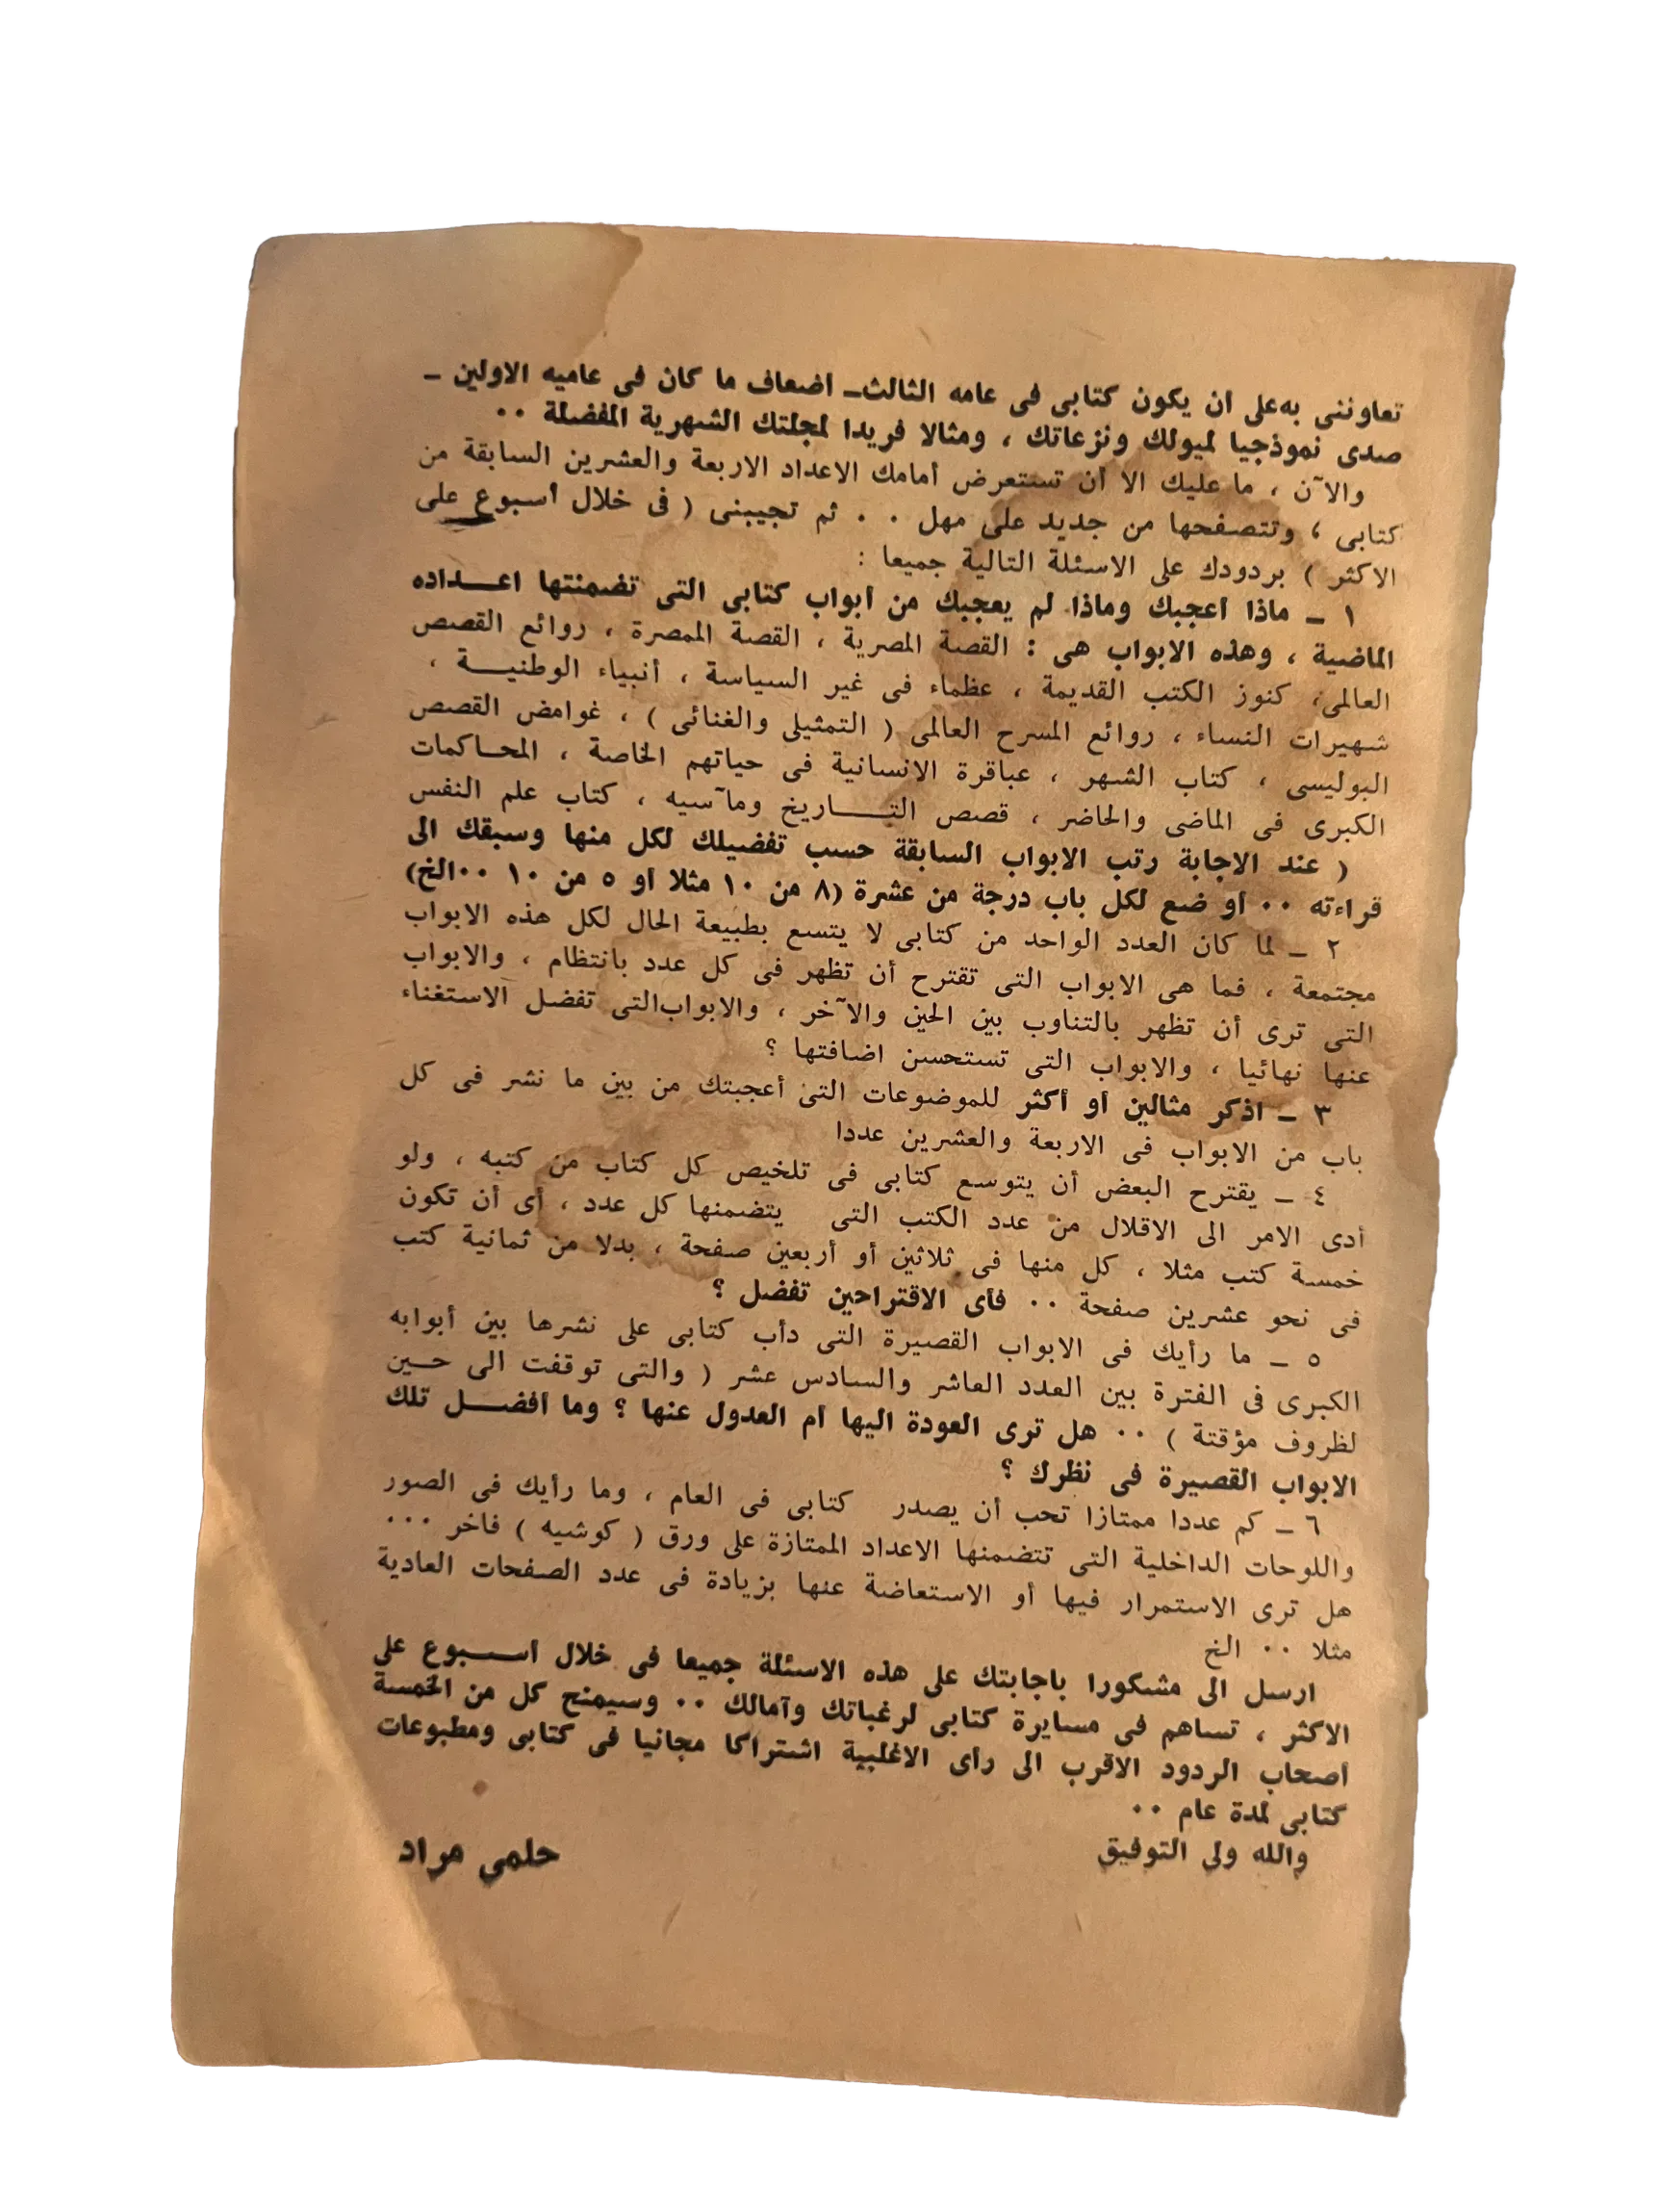 تعاوننى به على ان يكون كتابى فى عامه الثالث ـ اضعاف ما كان فى عاميه الاولين ـ
صدى نموذجيا لميولك ونزعاتك ، ومثالا فريدا لمجلتك الشهرية المفضلة ٠٠
والآن ، ما عليك الا أن تستعرض أمامك الاعداد الاربعة والعشرين السابقة من
كتابى ، وتتصفحها من جديد على مهل ٠٠ ثم تجيبنى ( فى خلال أسبوع على
الاكثر ) بردودك على الاسئلة التالية جميعا :
١ ـ ماذا أعجبك وماذا لم يعجبك من أبواب كتابى التى تضمنتها اعـــداده
الماضية ، وهذه الابواب هى : القصة المصرية ، القصة الممصرة ، روائع القصص
العالمى ، كنوز الكتب القديمة ، عظماء فى غير السياسة ، أنبياء الوطنيـــة ،
شهيرات النساء ، روائع المسرح العالمى ( التمثيلى والغنائى ) ، غوامض القصص
البوليسى ، كتاب الشهر ، عباقرة الانسانية فى حياتهم الخاصة ، المحـاكمات
الكبرى فى الماضى والحاضر ، قصص التـــاريخ ومآسيه ، كتاب علم النفس
( عند الاجابة رتب الابواب السابقة حسب تفضيلك لكل منها وسبقك الى
قراءته ٠٠ أو ضع لكل باب درجة من عشرة (٨ من ١٠ مثلا أو ٥ من ١٠ ٠٠الخ)
٢ ـ لما كان العدد الواحد من كتابى لا يتسع بطبيعة الحال لكل هذه الابواب
مجتمعة ، فما هى الابواب التى تقترح أن تظهر فى كل عدد بانتظام ، والابواب
التى ترى أن تظهر بالتناوب بين الحين والآخر ، والابواب التى تفضل الاستغناء
عنها نهائيا ، والابواب التى تستحسن اضافتها ؟
٣ ـ اذكر مثالين أو أكثر للموضوعات التى أعجبتك من بين ما نشر فى كل
باب من الابواب فى الاربعة والعشرين عددا
٤ ـ يقترح البعض أن يتوسع كتابى فى تلخيص كل كتاب من كتبه ، ولو
أدى الامر الى الاقلال من عدد الكتب التى يتضمنها كل عدد ، أى أن تكون
خمسة كتب مثلا ، كل منها فى ثلاثين أو أربعين صفحة ، بدلا من ثمانية كتب
فى نحو عشرين صفحة ٠٠ فأى الاقتراحين تفضل ؟
٥ ـ ما رأيك فى الابواب القصيرة التى دأب كتابى على نشرها بين أبوابه
الكبرى فى الفترة بين العدد العاشر والسادس عشر ( والتى توقفت الى حـين
لظروف مؤقتة ) ٠٠ هل ترى العودة اليها أم العدول عنها ؟ وما أفضـــل تلك
الابواب القصيرة فى نظرك ؟
٦ ـ كم عددا ممتازا تحب أن يصدر كتابى فى العام ، وما رأيك فى الصور
واللوحات الداخلية التى تتضمنها الاعداد الممتازة على ورق ( كوشيه ) فاخر ٠٠٠
هل ترى الاستمرار فيها أو الاستعاضة عنها بزيادة فى عدد الصفحات العادية
مثلا ٠٠ الخ
ارسل الى مشكورا باجابتك على هذه الاسئلة جميعا فى خلال أســـبوع على
الاكثر ، تساهم فى مسايرة كتابى لرغباتك وآمالك ٠٠ وسيمنح كل من الخمسة
أصحاب الردود الاقرب الى رأى الاغلبية اشتراكا مجانيا فى كتابى ومطبوعات
كتابى لمدة عام ٠٠
والله ولى التوفيق حلمى مراد